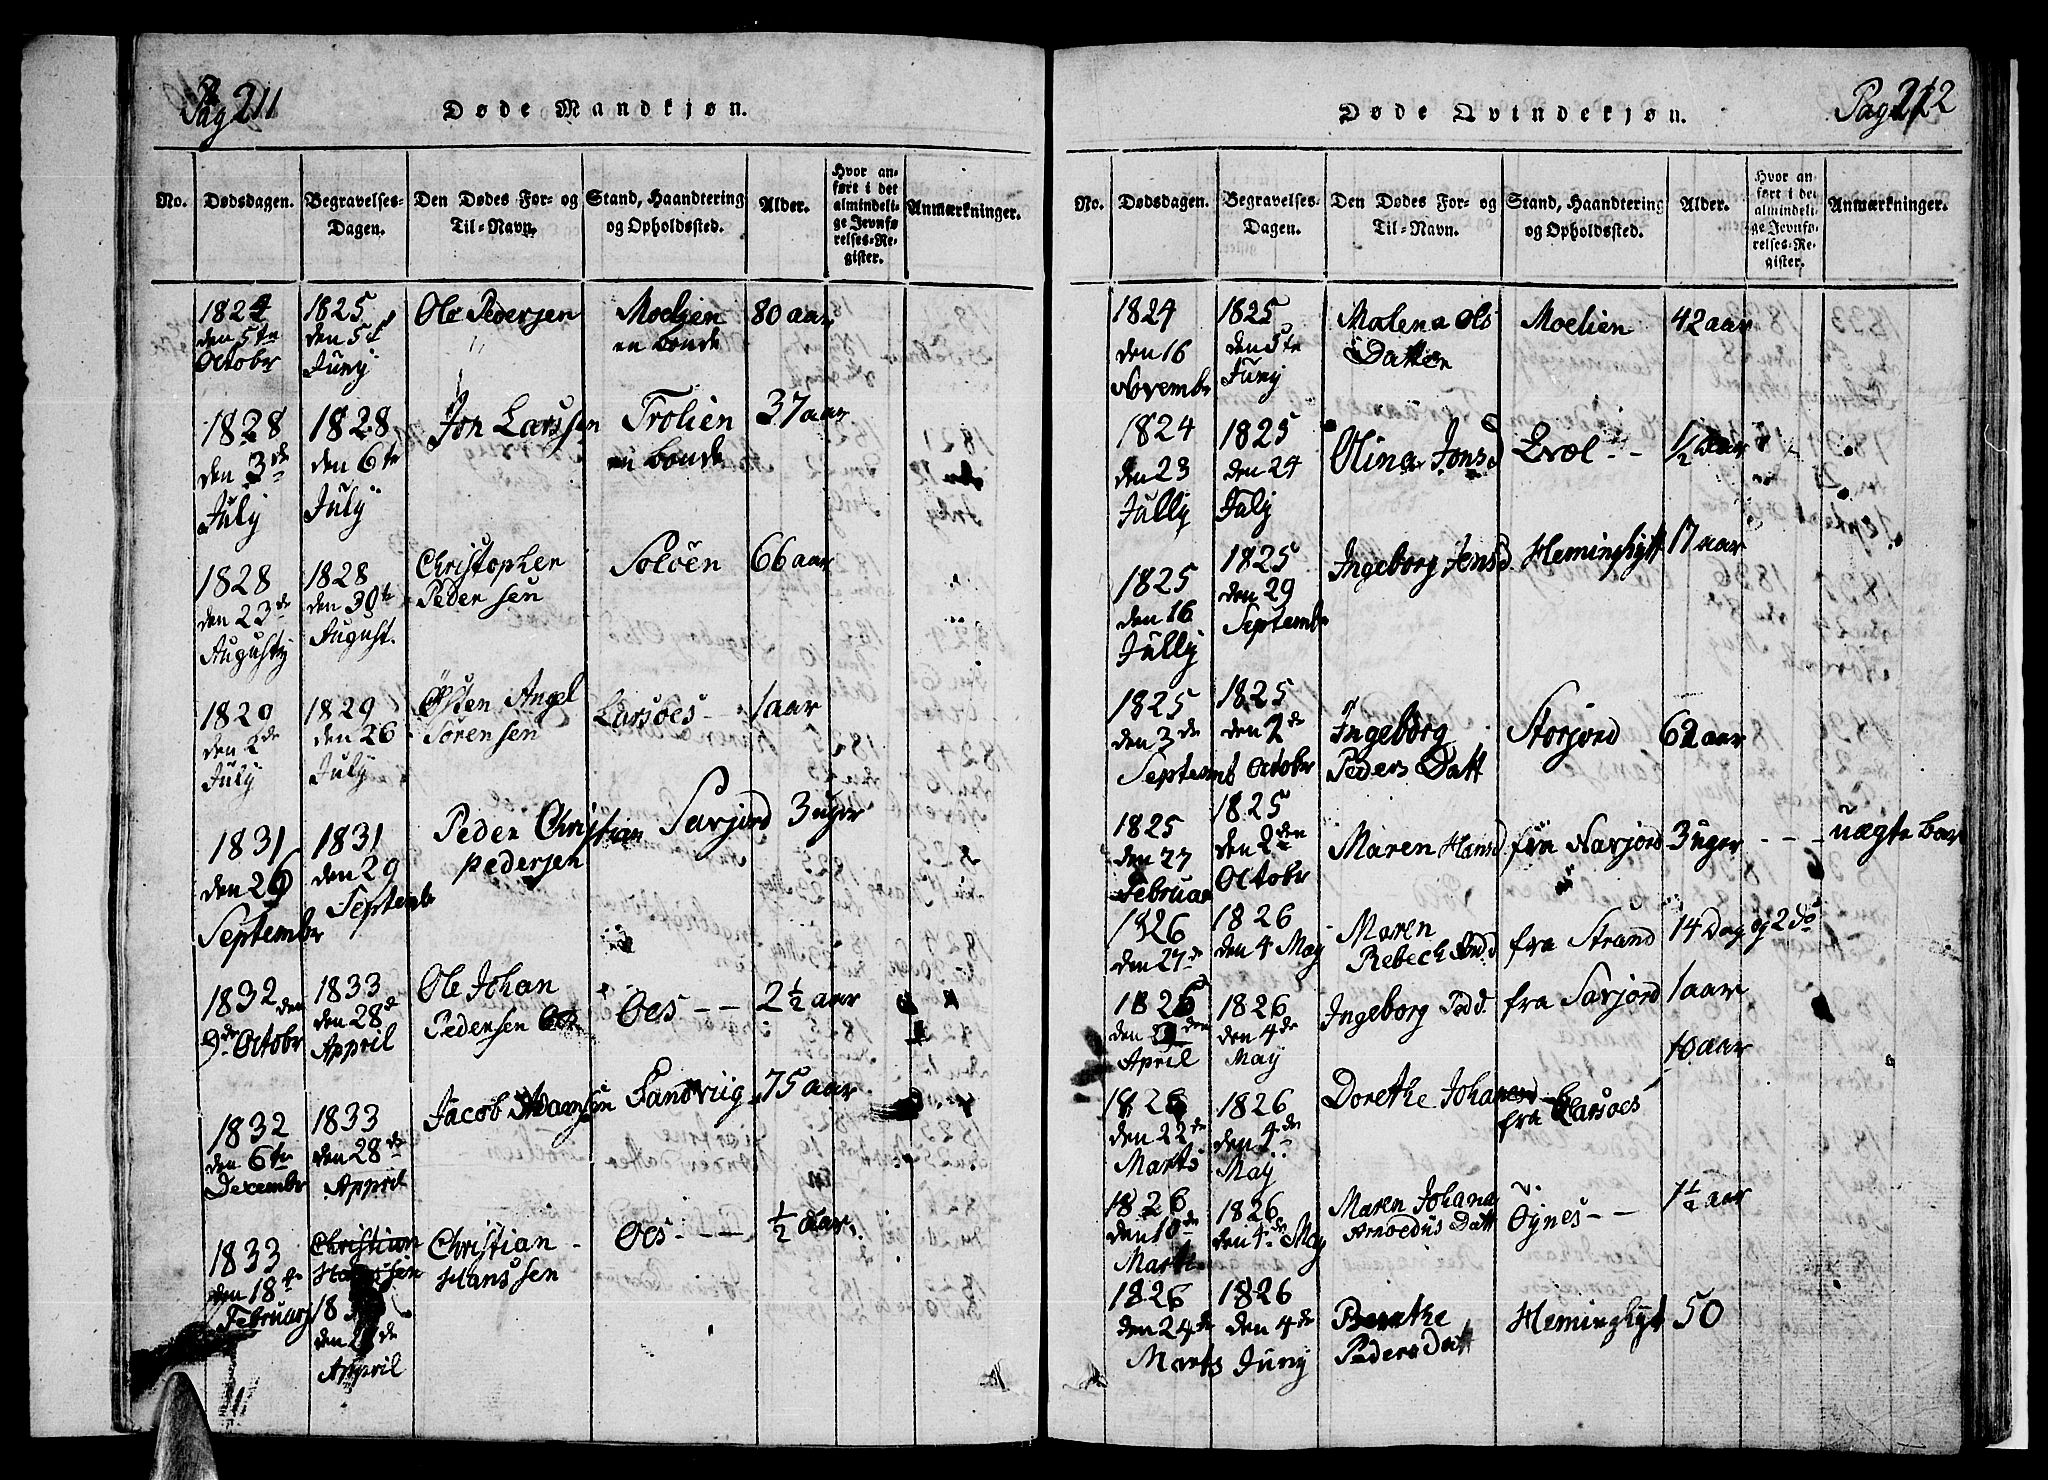 Pag 211
Døde Mandkjøn.
No.
Dødsdagen.
Begravelses-
Dagen.
Den Dødes For- og
Til-Navn.
Stand, Haandtering
og Opholdssted.
Alder.
Hvor an-
ført i det
almindeli-
ge Jevnfø-
relses-Re-
gister.
Anmærkninger.
1824
den 5te
Octobr
1825
den 5t
Junj
Ole Pedersen
Moelien
en bonde
80 aar
1828
den 3de
Julij
1828
den 6te
Julij
Jon Larssen
Trolien
en bonde
37 aar
1828
den 23de
Augustij
1828
den 30te
August.
Christopher
Pedersen
Soløen
66 aar
1829
den 2de
Julij
1829
den 26
Julij
Østen Angel
Sørensen
Larsoes -
1 aar
1831
den 26
Septembr
1831
den 29
Septembr
Peder Christian
Pedersen
Sarjord
3 uger
1832 den
9de Octobr
1833
den 28de
Appril
Ole Johan
Pedersen
Oes - -
2 1/2 aar
1832
den 6te
Decembr
1833
den 28de
Appril
Jacob Adamsen
Sandviig
75 aar
1833
den 18de
Februar
Christian
Hanssen
den 28de
Appril
Christian
Hanssen
Oes - - -
1/2 aar
Pag 212
Døde Qvindekjøn.
No.
Dødsdagen.
Begravelses-
Dagen.
Den Dødes For- og
Til-Navn.
Stand, Haandtering
og Opholdssted.
Alder.
Hvor an-
ført i det
almindeli-
ge Jevnfø-
relses-Re-
gister.
Anmærkninger.
1824
den 16
Novembr
1825
den 5te
Junj
Malena Ols
Datter
Moelien
42 aar
1824
den 23
Jullij
1825
den 24
Julij
Olina Jonsd
Qvæl - -
1/2 aar
1825
den 16
Jullij
1825
den 29
Septembr
Ingeborg Jensd
Heminghytt
17 aar
1825
den 3de
Septemb
1825
den 2de
Octobr
Ingeborg
Peders Datt
Storjord
62 aar
1825
den 27
Februar
1825
den 2den
Octobr
Maren Hansd
fra Sarjord
3 uger - - -
uægte bar
1826
den 27de
1826
den 4 May
Maren
Rebech
fra Strand
14 Dag og 2 do
1826
April
1826
den 4de
May
Ingeborg Pedd.
fra Sarjord
1 aar
1826
den 22de
Marts
1826
den 4de
May
Dorethe Johansd
fra Larsoes
10 aar
1826
den 10de
Marti
1826
den 4de May
Maren Johana
Arnoldus Datt
Øynes - -
1 1/2 aar
1826
den 24de
Marts
1826
den 4de
Junij
Berethe
Peders Datt
Heminghyt
50